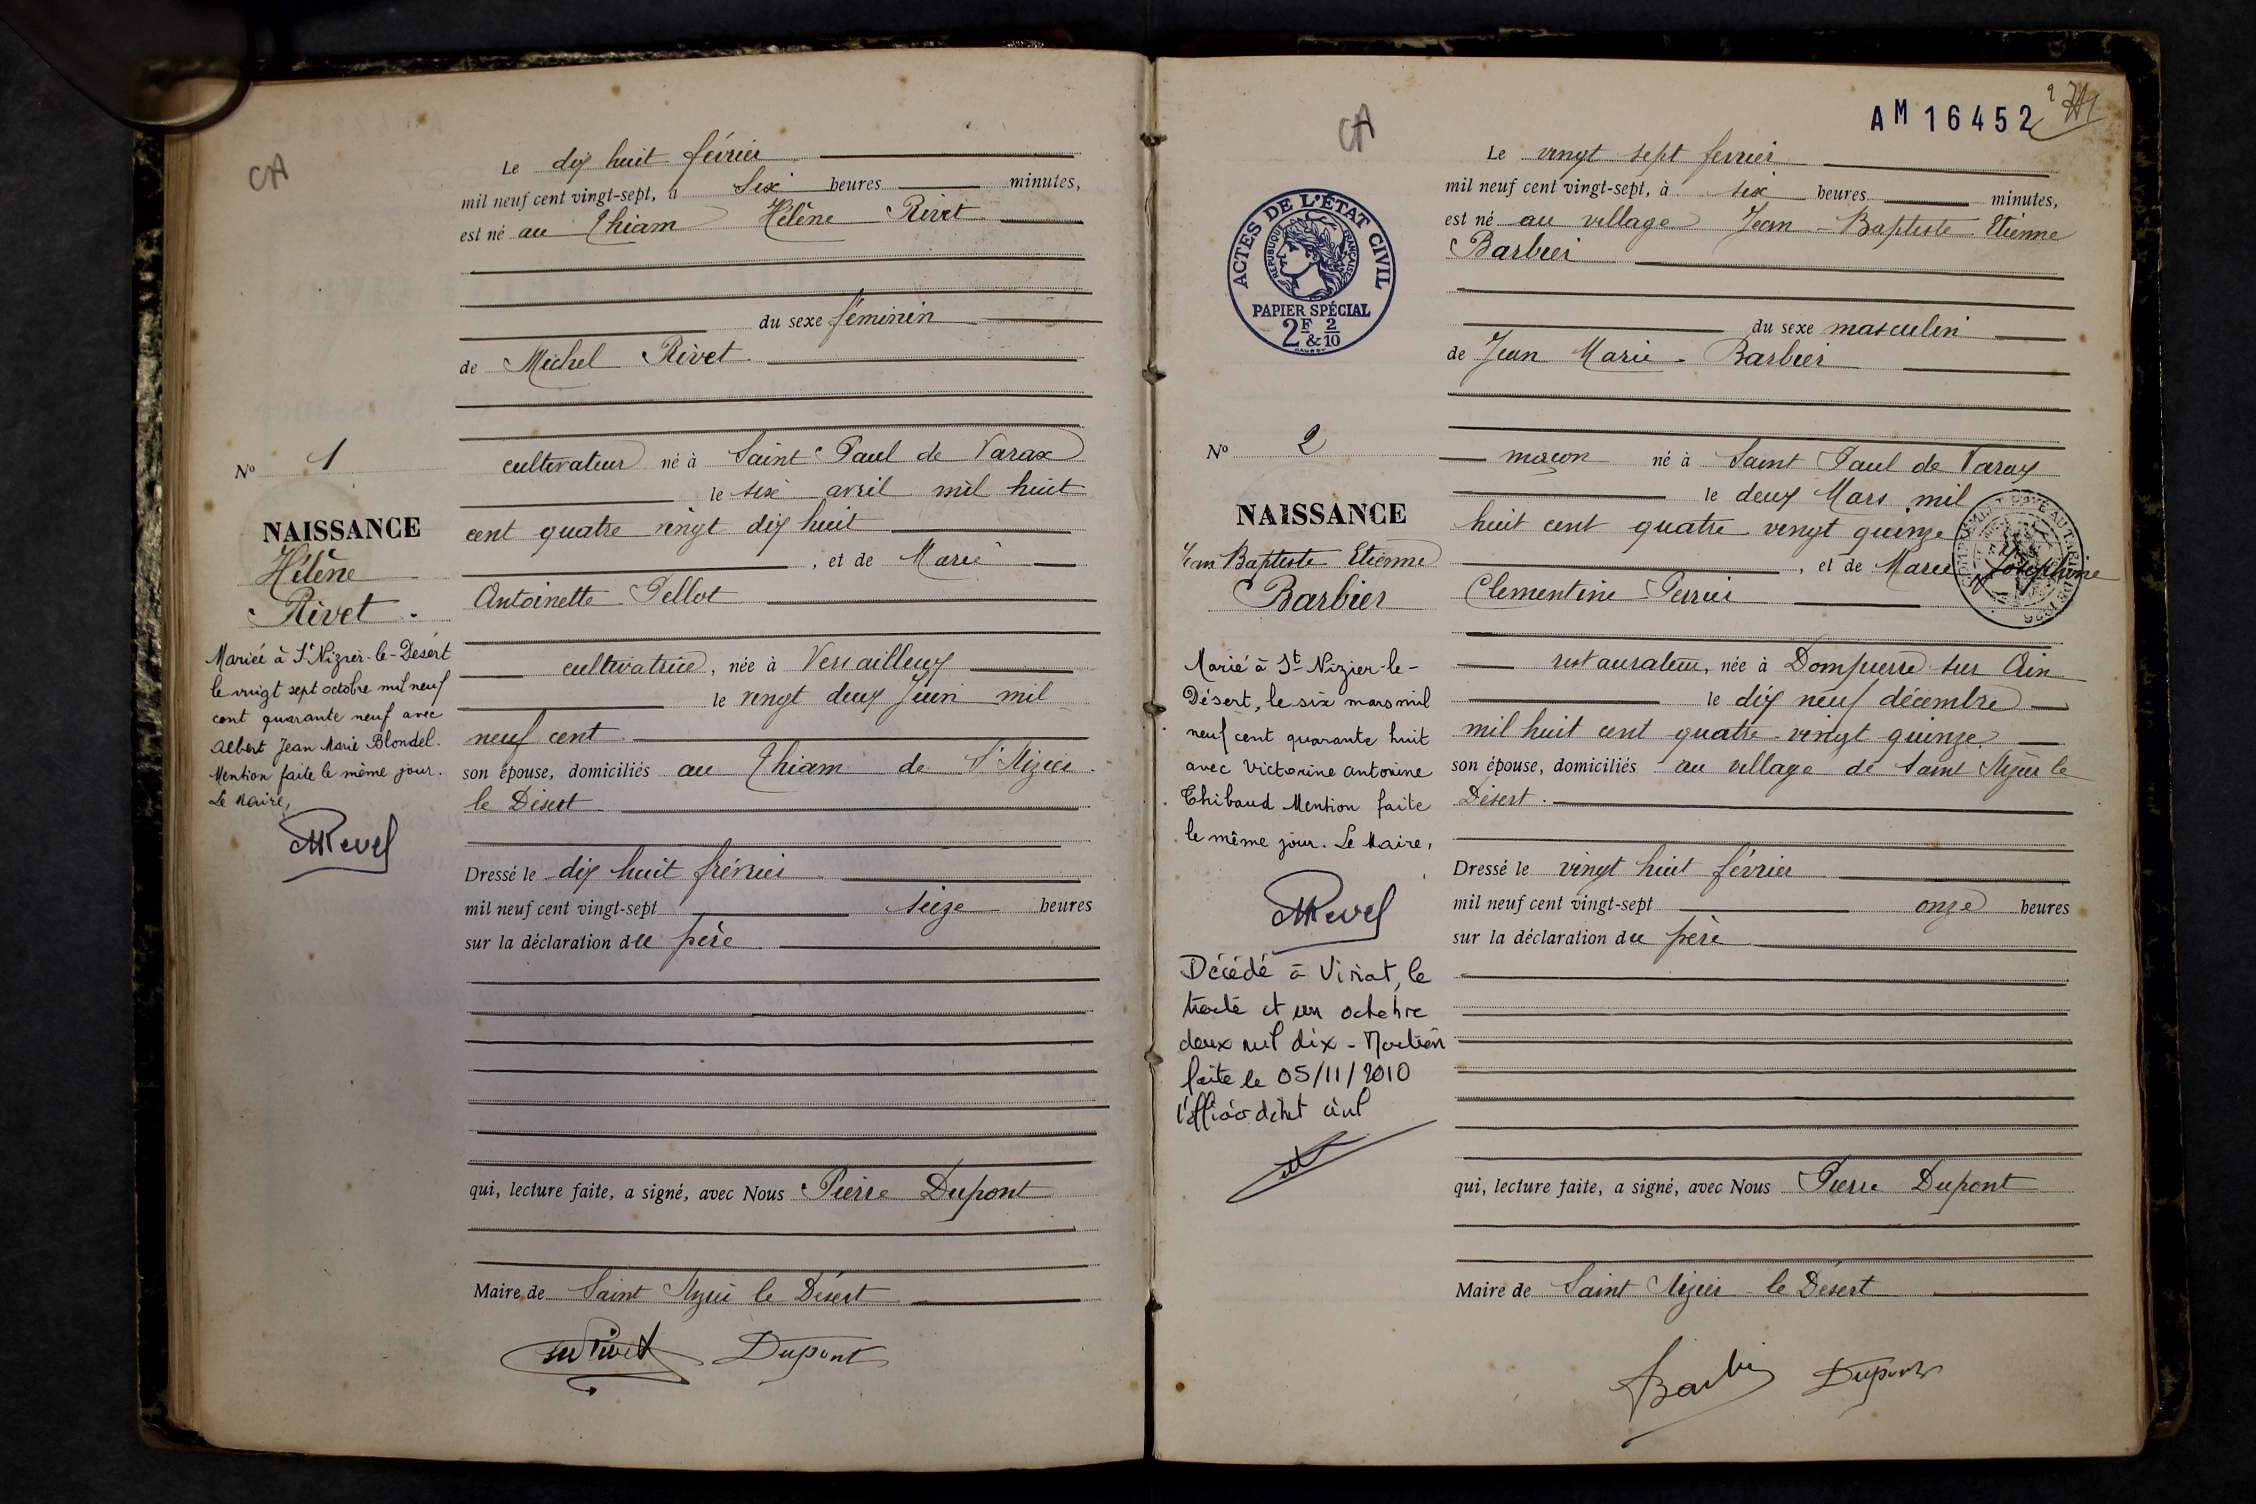 CA
Le dix huit février
mil neuf cent vingt-sept, à Six heures minutes,
est né au Thiam Hélène Rivet
du sexe féminin
de Michel Rivet
No 1
NAISSANCE
Hélène
Rivet
Mariée à St Nizier-le-Désert
le vingt sept octobre mil neuf
cent quarante neuf avec
Albert Jean Marie Blondel.
Mention faite le même jour.
Le Maire,
MRevel
cultivateur né à Saint Paul de Varax
le six avril mil huit
cent quatre vingt dix huit
, et de Marie
Antoinette Pellot
cultivatrice, née à Versailleux
le vingt deux Juin mil
neuf cent
son épouse, domiciliés au Thiam de St Nizier
le Désert
Dressé le dix huit frévrier
mil neuf cent vingt-sept seize heures
sur la déclaration du père
qui, lecture faite, a signé, avec Nous Pierre Dupont
Maire de Saint Nizier le Désert
Rivet Dupont
CA
AM 16452
2
Le vingt sept fevrier
mil neuf cent vingt-sept, à six heures minutes,
est né au village Jean-Baptiste Etienne
Barbier
du sexe masculin
de Jean Marie Barbier
ACTES DE L'ÉTAT CIVIL
RÉPUBLIQUE FRANÇAISE
PAPIER SPÉCIAL
2F & 2/10
No 2
NAISSANCE
Jean Baptiste Etienne
Barbier
Marié à St-Nizier-le-
Désert, le six mars mil
neuf cent quarante huit
avec Victorine Antonine
Thibaud Mention faite
le même jour. Le Maire,
MRevel
Décédé à Viriat, le
trente et un octobre
deux mil dix - Mention
faite le 05/11/2010
l'officier d'état civil
maçon né à Saint Paul de Varax
le deux Mars mil
huit cent quatre-vingt quinze
, et de Marie Joséphine
Clementine Perrier
restaurateur, née à Dompierre sur Ain
le dix neuf décembre
mil huit cent quatre-vingt quinze
son épouse, domiciliés au village de Saint Nizier le
Désert.
Dressé le vingt huit février
mil neuf cent vingt-sept onze heures
sur la déclaration du père
qui, lecture faite, a signé, avec Nous Pierre Dupont
Maire de Saint Nizier le Désert
Barbier Dupont